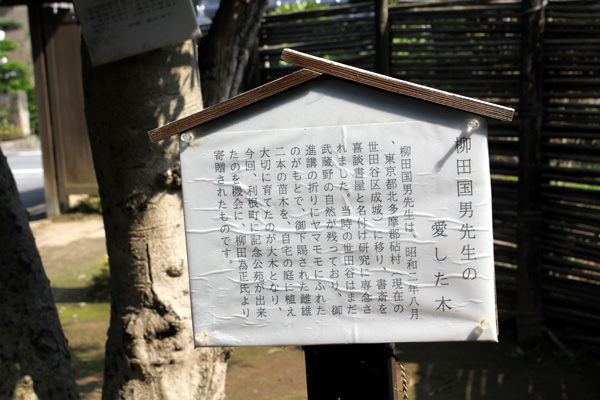 柳田国男先生の
愛した木
柳田国男先生は、昭和二年八月
、東京都北多摩郡砧村(現在の
世田谷区成城)に移り、書斎を
喜談書屋と名付け研究に専念さ
れました。当時の世田谷はまだ
武蔵野の自然が残っており、御
進講の折りにヤマモモにふれた
のがもとで、御下賜された雌雄
二本の苗木を、自宅の庭に植え
大切に育てたのが大木となり、
今回、利根町に記念公苑が出来
たのを機会に、柳田為正氏より
寄贈されたものです。